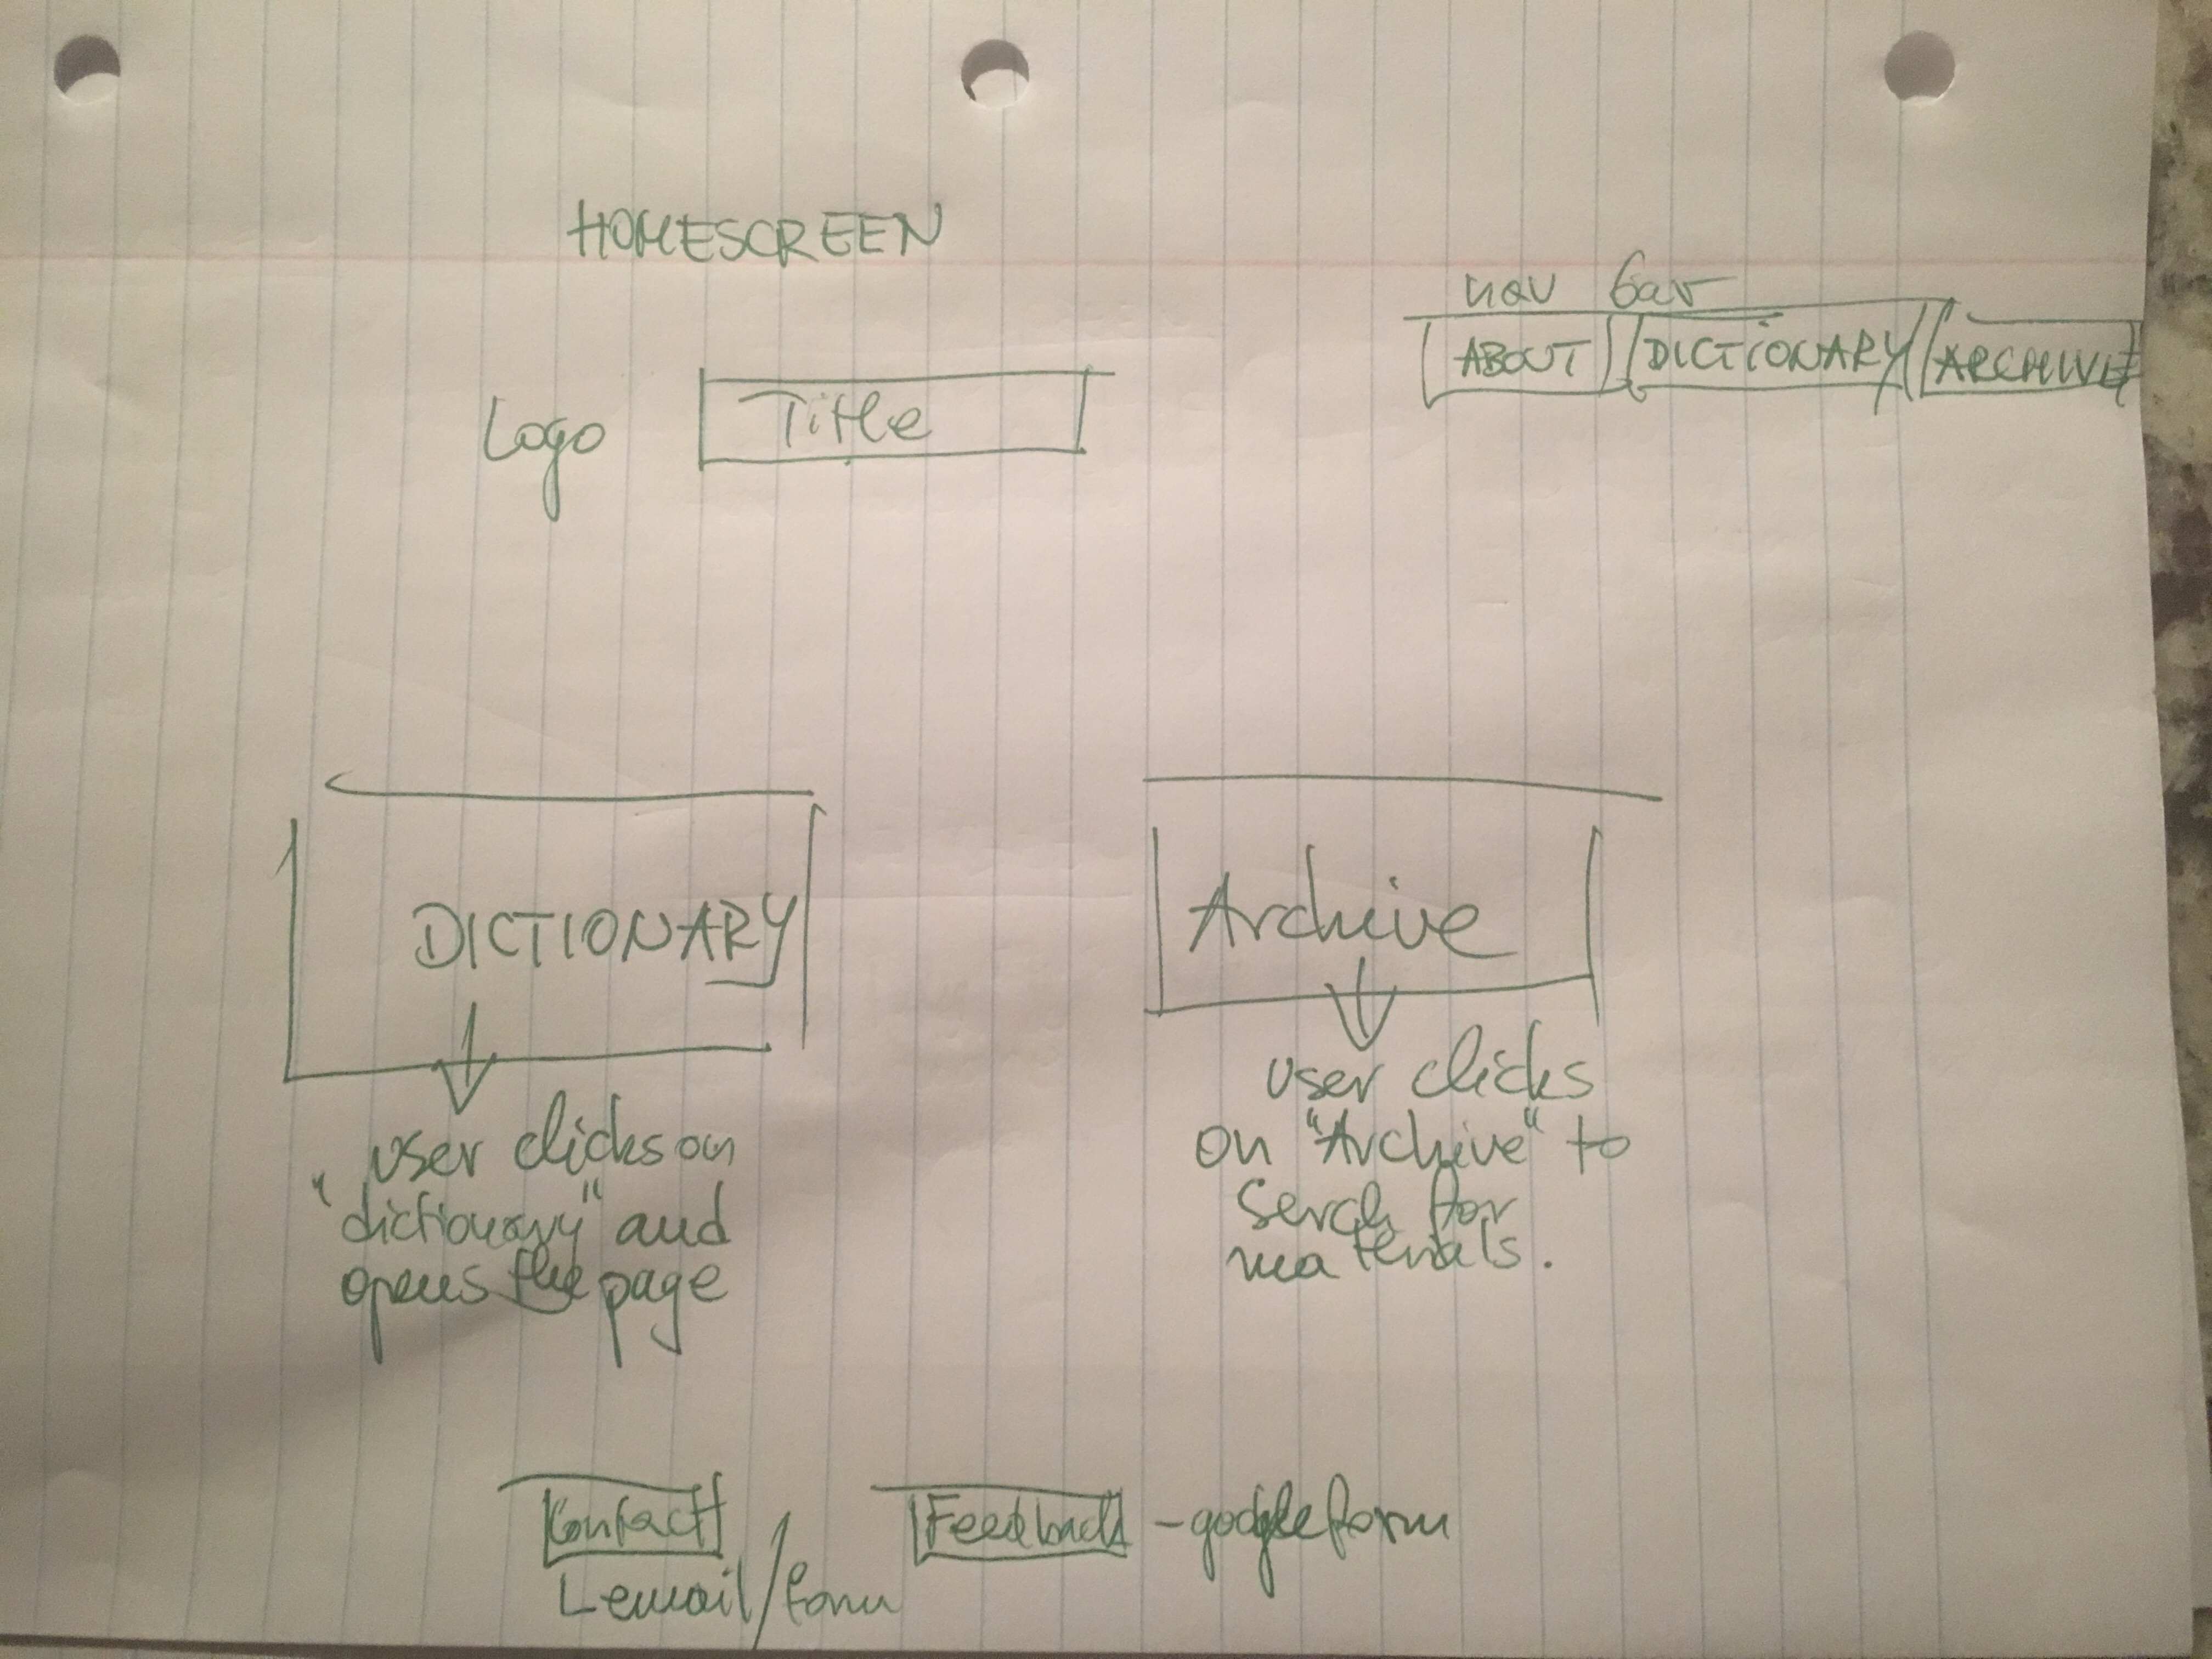 HOMESCREEN
nav bar
ABOUT DICTIONARY ARCHIVE
Logo Title
DICTIONARY
user clicks on
"dictionary" and
opens the page
Archive
user clicks
on "Archive" to
Serch for
materials.
Contact
email/form
Feedback - google form